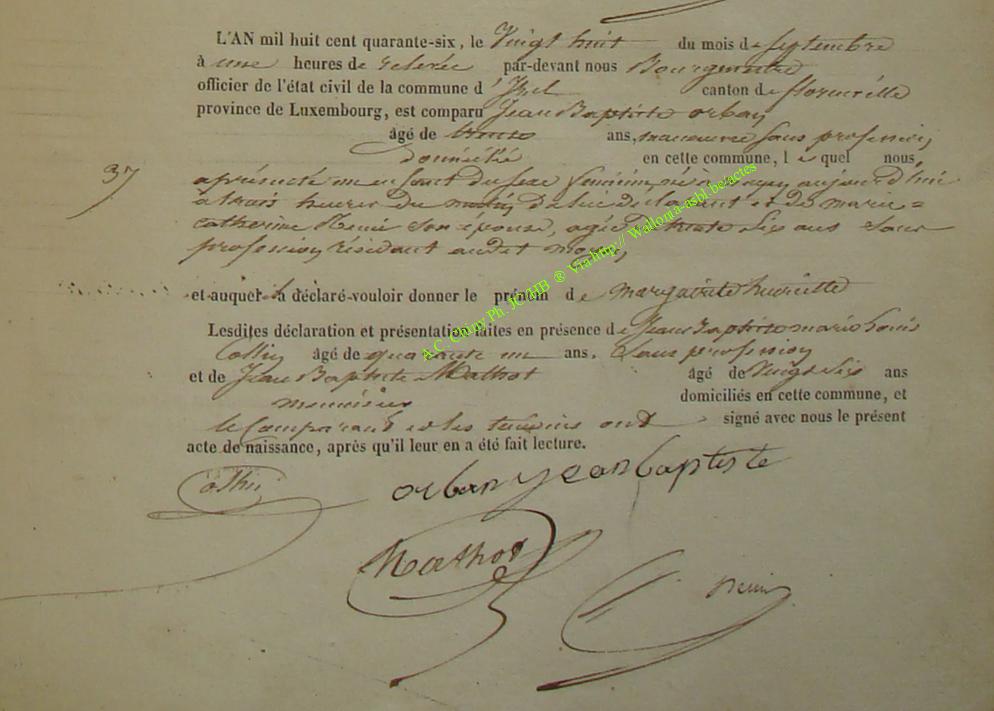 L'AN mil huit cent quarante-six, le Vingt huit du mois de Septembre
à une heures de relevée par-devant nous Bourgmestre
officier de l'état civil de la commune d'Izel canton de florenville
province de Luxembourg, est comparu Jean Baptiste orban
âgé de trente ans, manoeuvre Sans profession
domicilié en cette commune, lequel nous
37
a présenté un enfant du sexe féminin, né à aujourd'hui
à trois heures du matin de lui déclarant et de marie=
catherine son épouse, agée de trente Six ans Sans
profession résidant audit
et auquel il a déclaré vouloir donner le prénom de margueritte henriette
Lesdites déclaration et présentation faites en présence de Jean Baptiste marie Louis
Collin âgé de quarante un ans, Sans profession
et de Jean Baptiste Mathot âgé de Vingt Six ans
menuisier domiciliés en cette commune, et
le Comparant et les temoins ont signé avec nous le présent
acte de naissance, après qu'il leur en a été fait lecture.
Collin orban jean baptiste
Mathot
A.C. Chiny Ph. JC/HB ® Via http:// Wallonia-asbl.be/actes